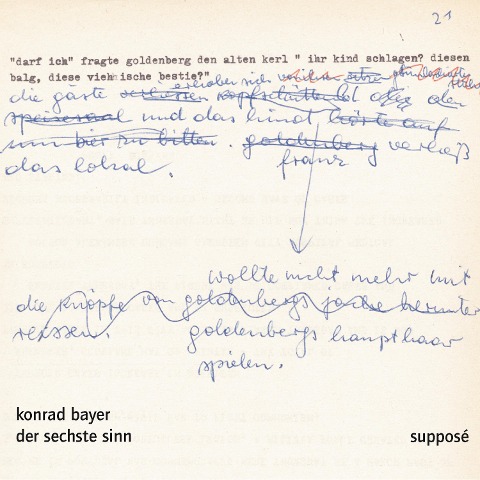 21
"darf ich" fragte goldenberg den alten kerl " ihr kind schlagen? diesen
balg, diese viehische bestie?"
erhoben sich von ihren sitzen
die gäste verliessen kopfschüttelnd den
speisesaal und das kind hörte auf
um bier zu bitten. goldenberg verließ
franz
das lokal.
wollte nicht mehr mit
die knöpfe von goldenbergs jacke herunter
reissen. goldenbergs haupthaar
spielen.
konrad bayer
der sechste sinn
supposé